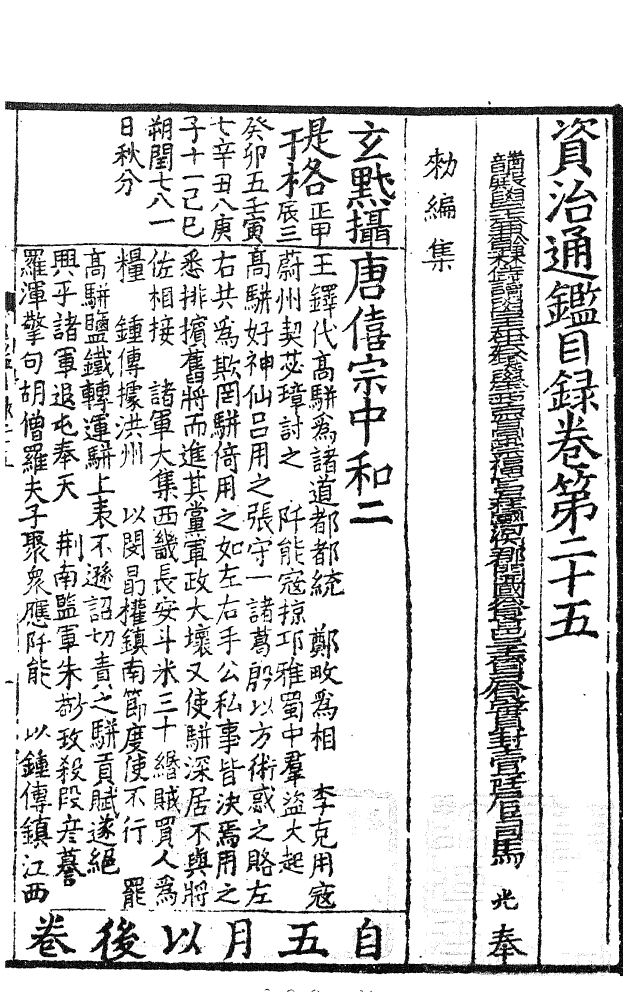 資治通鑑目録卷第二十五
福宮 河 郡開國 邑 百户 食 實封壹 臣司馬 光 奉
勑編集
玄黓攝
提格 正甲
于 辰三
癸卯五壬寅
七辛丑八庚
子十一己巳
朔閏七八一
日秋分
唐僖宗中和二
王鐸代高駢為諸道都都統 鄭畋為相 李克用寇
蔚州契苾璋討之 阡能寇掠邛雅蜀中羣盜大起
高駢好神仙呂用之張守一諸葛殷以方術惑之賂左
右共為欺罔駢倚用之如左右手公私事皆決焉用之
悉排擯舊將而進其黨軍政大壞又使駢深居不與將
佐相接 諸軍大集西畿長安斗米三十緡賊買人為
糧 鍾傳據洪州 以閔勗權鎮南節度使不行 罷
高駢鹽鐵轉運駢上表不遜詔切責之駢貢賦遂絕
興平諸軍退屯奉天 荆南監軍朱敬玫殺段彦謩
羅渾擎句胡僧羅夫子聚衆應阡能 以鍾傳鎮江西
自五月以後卷